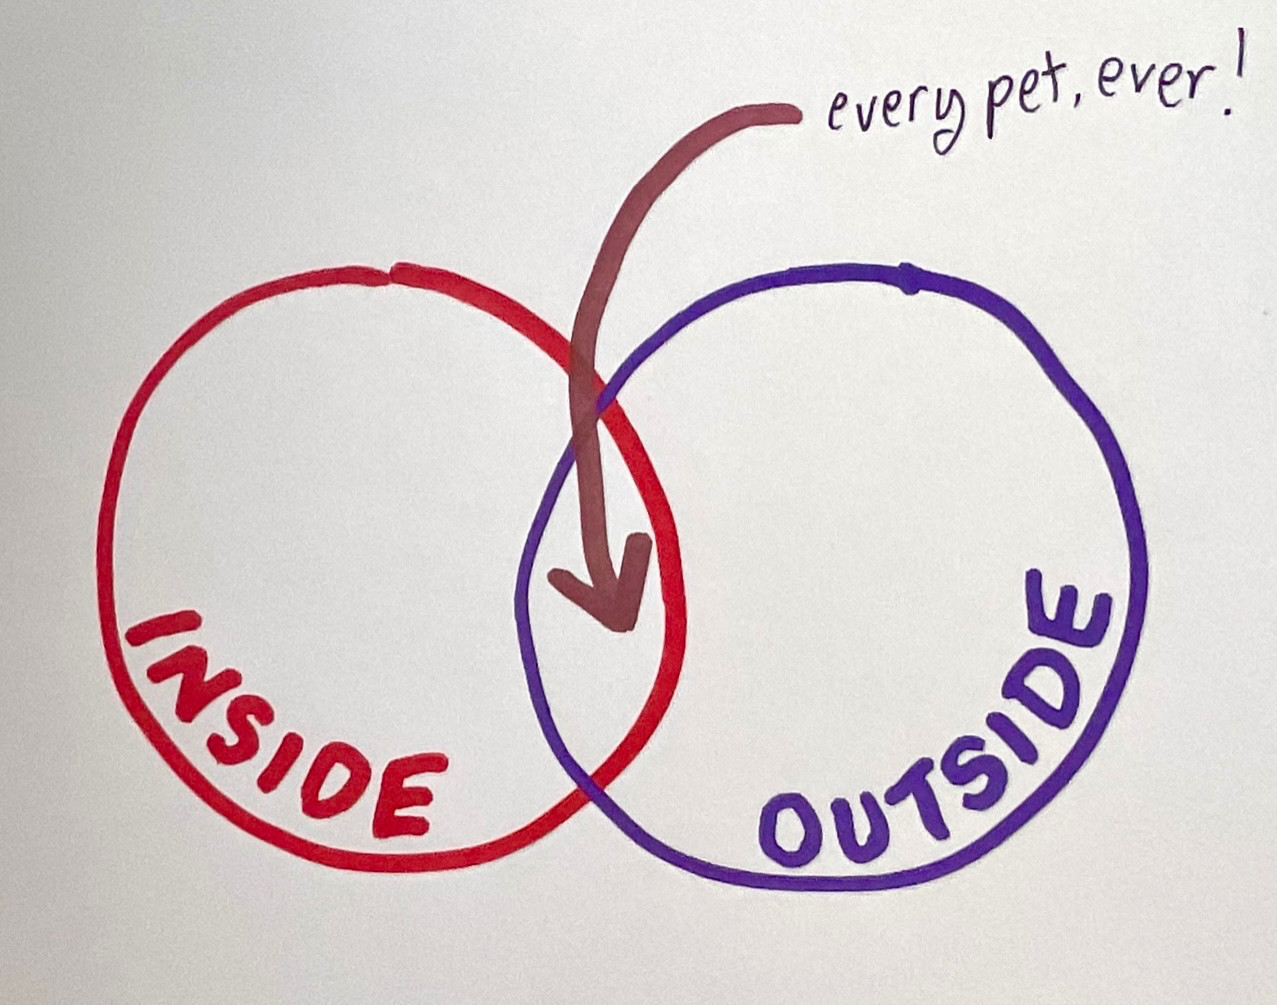 every pet, ever!
INSIDE
OUTSIDE